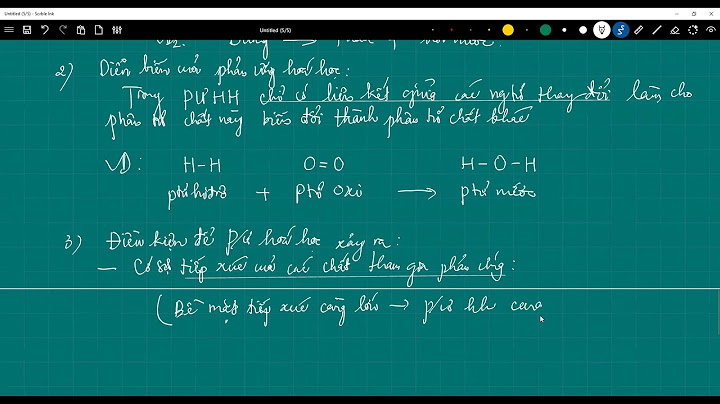 Untitled (5/5) - Scrble Ink
Untitled (5/5)
2) Diễn biến của phản ứng hoá học:
Trong PƯHH chỉ có liên kết giữa các ngtố thay đổi làm cho
phân tử chất này biến đổi thành phân tử chất khác
VD: H-H O=O H-O-H
ptử hiđrô + ptử oxi → ptử nước
3) Điều kiện để p/ứ hoá học xảy ra:
- Có sự tiếp xúc của các chất tham gia phản ứng:
(Bề mặt tiếp xúc càng lớn → p/ứ hh càng